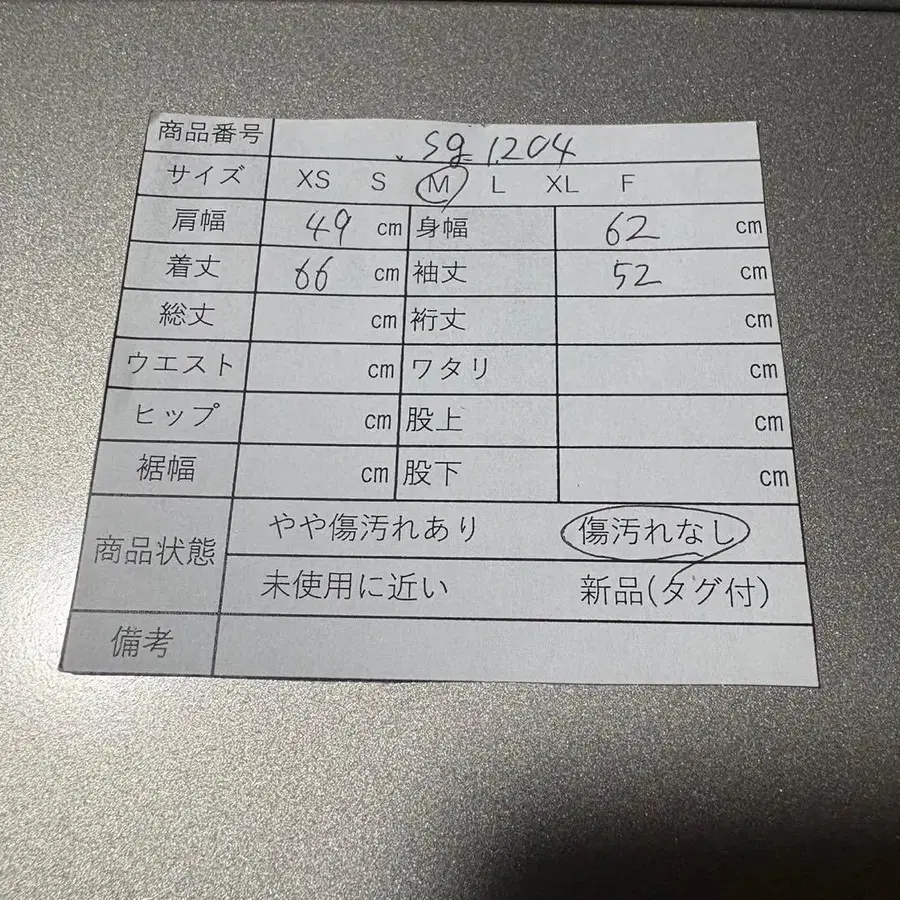 商品番号 sg-1204
サイズ XS S M L XL F
肩幅 49 cm 身幅 62 cm
着丈 66 cm 袖丈 52 cm
総丈 cm 裄丈 cm
ウエスト cm ワタリ cm
ヒップ cm 股上 cm
裾幅 cm 股下 cm
商品状態 やや傷汚れあり 傷汚れなし
未使用に近い 新品(タグ付)
備考